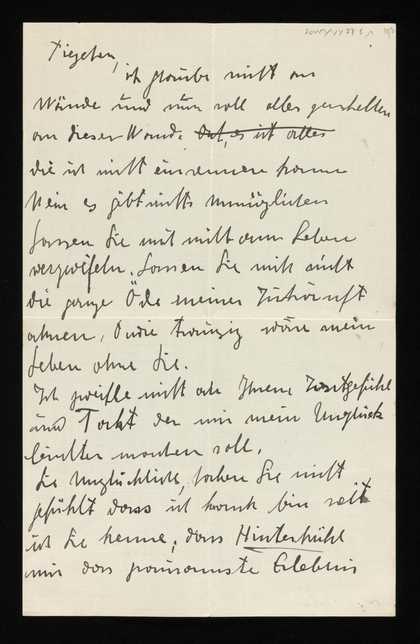 ich glaube nicht an
Wände und nun soll alles zerschellen
an dieser Wand. Das, es ist alles
die ich nicht einrennen kann
Nein es gibt nichts Unmögliches
Lassen Sie mich nicht am Leben
verzweifeln. Lassen Sie mich nicht
die ganze Öde meiner Zukunft
ahnen, O wie traurig wäre mein
Leben ohne Sie.
Ich zweifle nicht an Ihrem Zartgefühl
und Takt der mir mein Unglück
leichter machen soll.
Sie Unglückliche, haben Sie nicht
gefühlt dass ich krank bin seit
ich Sie kenne, dass Hinterbrühl
mir das grausamste Erlebnis